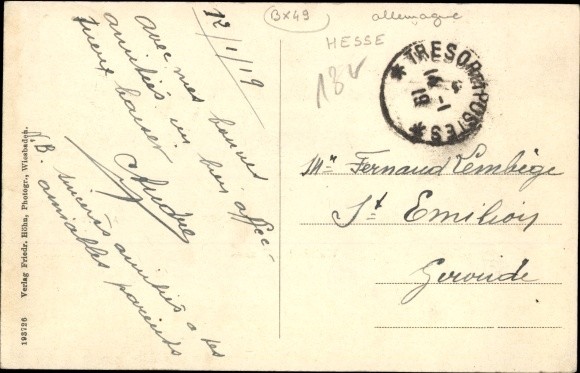 BX49
allemagne
HESSE
12/1/19
avec mes bonnes
amitiés un bien affec-
tueux baiser
André
N.B. sincères amitiés à tes
aimables parents
* TRESOR ET POSTES *
14
1
19
Mr Fernand Lembège
St Emilion
Gironde
193726 Verlag Friedr. Höhn, Photogr., Wiesbaden.